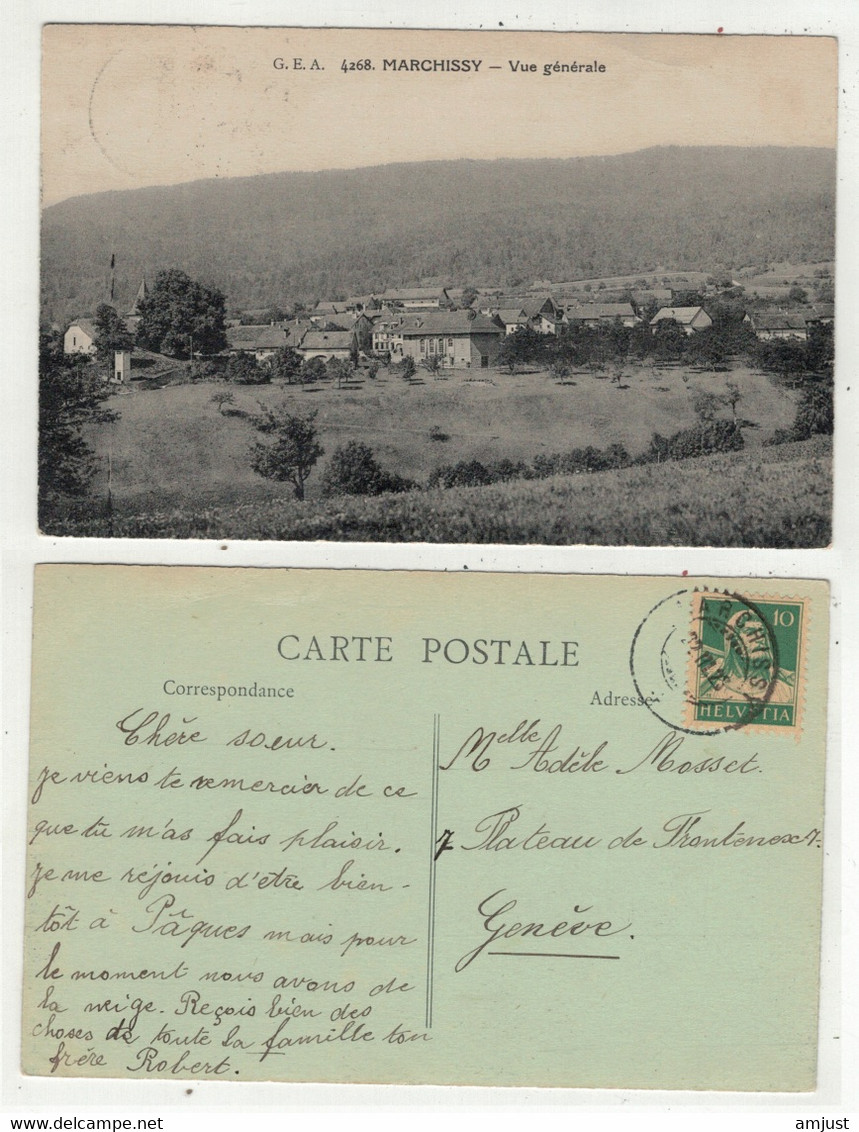 G. E. A. 4268. MARCHISSY — Vue générale
CARTE POSTALE
Correspondance
Adresse
10
HELVETIA
MARCHISSY
Chère soeur.
Je viens te remercier de ce
que tu m'as fais plaisir.
Je me réjouis d'être bien-
tôt à Pâques mais pour
le moment nous avons de
la neige. Reçois bien des
choses de toute la famille ton
frère Robert.
Melle Adèle Mosset.
7 Plateau de Frontenex 7.
Genève.
amjust